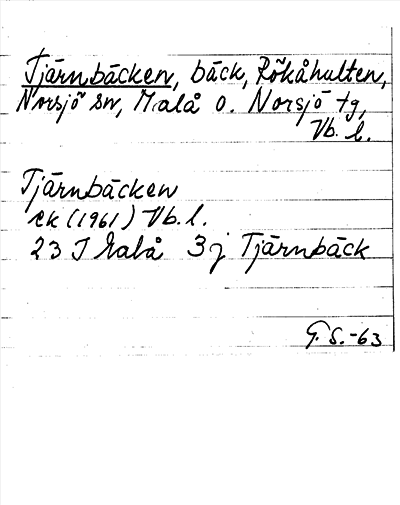 Tjärnbäcken, bäck, Rökåhulten,
Norsjö sn, Malå o. Norsjö tg,
Vb. l.
Tjärnbäcken
ek (1961) Vb. l.
23 J Malå 3j Tjärnbäck
G. S. -63